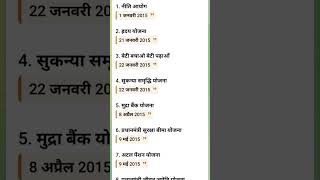 1. नीति आयोग
1 जनवरी 2015
2. हृदय योजना
21 जनवरी 2015
3. बेटी बचाओ बेटी पढ़ाओं
22 जनवरी 2015
4. सुकन्या समृद्धि योजना
22 जनवरी 2015
5. मुद्रा बैंक योजना
8 अप्रैल 2015
6. प्रधानमंत्री सुरक्षा बीमा योजना
9 मई 2015
7. अटल पेंशन योजना
9 मई 2015
22 जनवरी 2015
4. सुक
22 ज
5. मुद्रा बैंक
8 अप्रैल
योजना